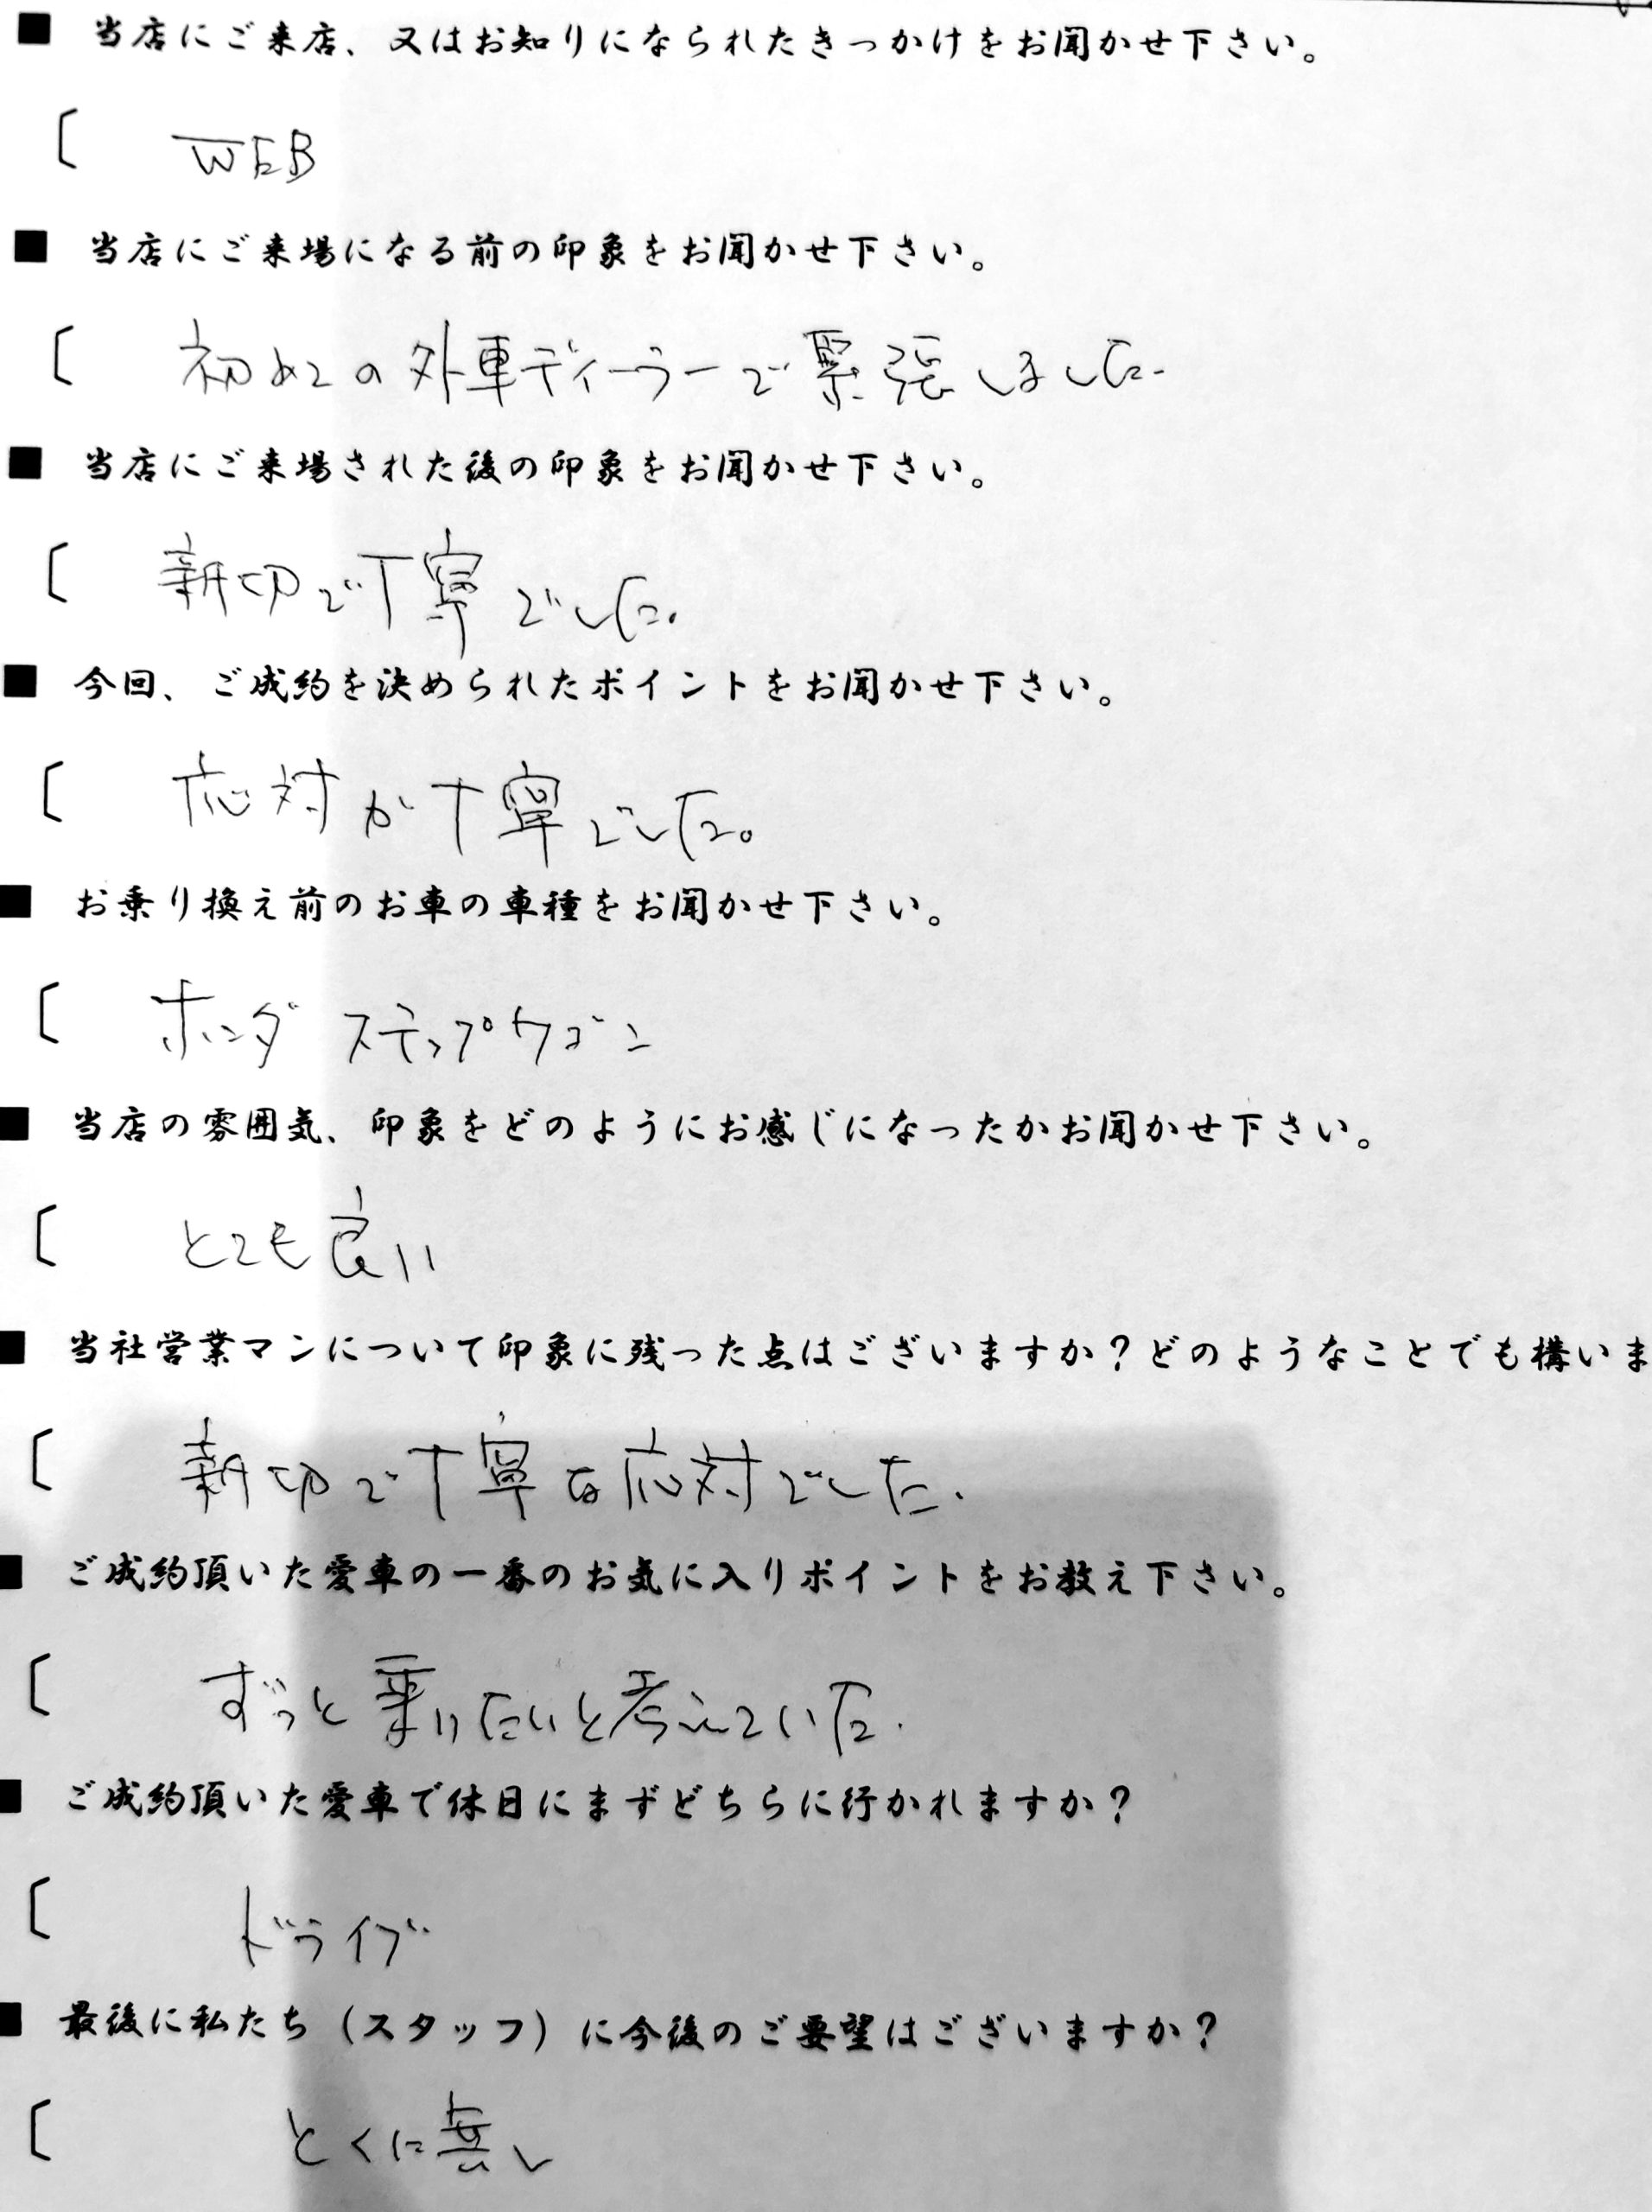 ■ 当店にご来店、又はお知りになられたきっかけをお聞かせ下さい。
〔 WEB
■ 当店にご来場になる前の印象をお聞かせ下さい。
〔 初めての外車ディーラーで緊張しました.
■ 当店にご来場された後の印象をお聞かせ下さい。
〔 親切で丁寧でした.
■ 今回、ご成約を決められたポイントをお聞かせ下さい。
〔 応対が丁寧でした。
■ お乗り換え前のお車の車種をお聞かせ下さい。
〔 ホンダ ステップワゴン
■ 当店の雰囲気、印象をどのようにお感じになったかお聞かせ下さい。
〔 とても良い
■ 当社営業マンについて印象に残った点はございますか?どのようなことでも構いま
〔 親切で丁寧な応対でした.
■ ご成約頂いた愛車の一番のお気に入りポイントをお教え下さい。
〔 ずっと乗りたいと考えていた.
■ ご成約頂いた愛車で休日にまずどちらに行かれますか?
〔 ドライブ
■ 最後に私たち(スタッフ)に今後のご要望はございますか?
〔 とくに無し